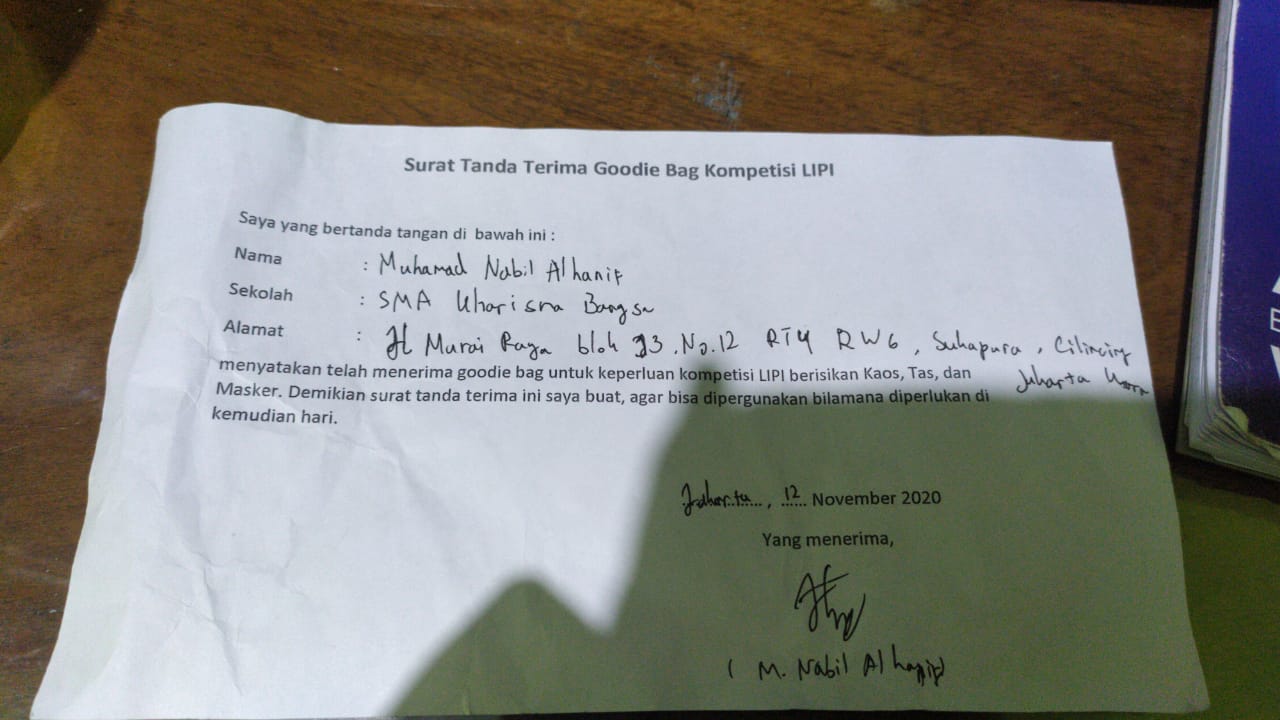 Surat Tanda Terima Goodie Bag Kompetisi LIPI
Saya yang bertanda tangan di bawah ini :
Nama : Muhamad Nabil Alhanif
Sekolah : SMA Kharisma Bangsa
Alamat : Jl Murai Raya blok J3, No.12 RT4 RW6, Sukapura, Cilincing
Jakarta Utara
menyatakan telah menerima goodie bag untuk keperluan kompetisi LIPI berisikan Kaos, Tas, dan
Masker. Demikian surat tanda terima ini saya buat, agar bisa dipergunakan bilamana diperlukan di
kemudian hari.
Jakarta, 12 November 2020
Yang menerima,
( M. Nabil Alhanif)